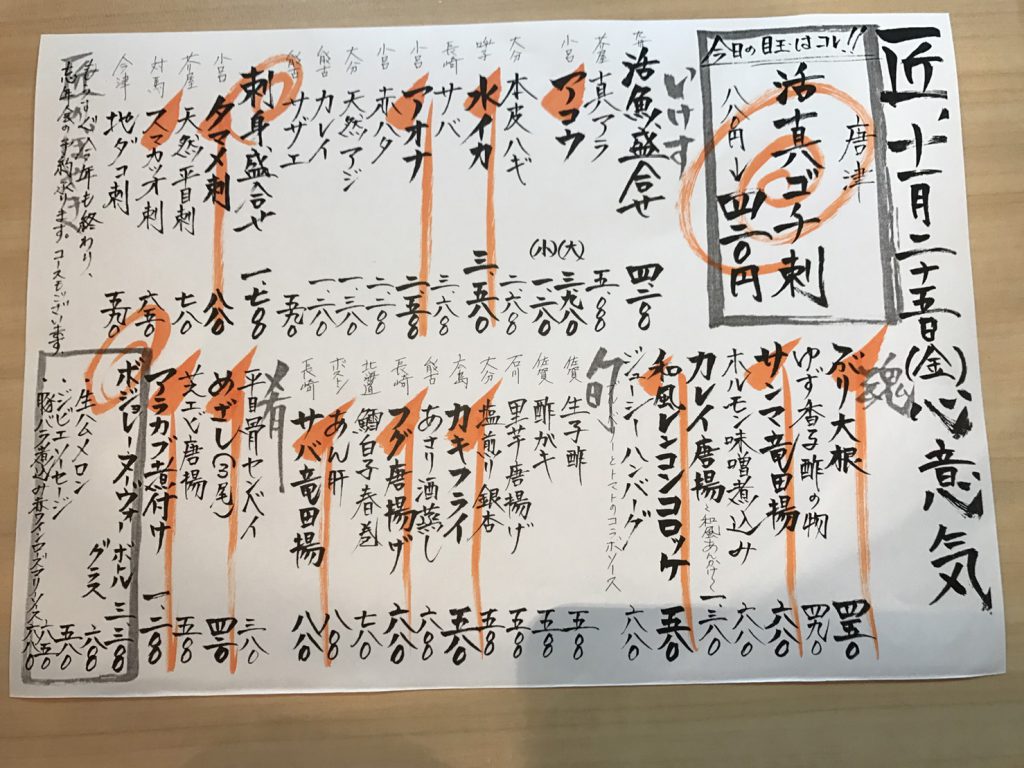 匠、十一月二十五日(金)心意気
今日の目玉はコレ、!!
唐津
活真ハゴチ刺
八八〇円→四二〇円
いけす
活魚盛合せ 四、二〇〇
茶屋 真アラ 五、〇〇
小呂 アコウ (大)三、九八〇 (小)一、二八〇
大分 本皮ハギ 二、六〇〇
呼子 水イカ 三、五八〇
長崎 サバ 三、六〇〇
小呂 アオナ 二、五〇〇
小呂 赤ハタ 二、二八〇
大分 天然アジ 一、三八〇
能古 カレイ 一、二八〇
能古 サザエ 五八〇
刺身、盛合せ 一、七〇〇
小呂 タマメ刺 八八〇
茶屋 天然平目刺 七八〇
対馬 スマカツオ刺 六五〇
今津 地ダコ刺 五八〇
忘年会の予約承ります。コースもございます
魂
ぶり大根 四五〇
ゆず香る酢の物 四八〇
サンマ竜田揚 六八〇
ホルモン味噌煮込み 六八〇
カレイ唐揚〜和風あんかけ〜 一、三八〇
和風レンコンコロッケ 五八〇
ジューシーハンバーグ 六八〇
とトマトのコラボソース
旬
佐賀 生子酢 五〇〇
佐賀 酢ガキ 五〇〇
石川 里芋唐揚げ 五〇〇
大分 塩煎り銀杏 五〇〇
広島 カキフライ 五八〇
能古 あさり酒蒸し 六〇〇
長崎 フグ唐揚げ 六八〇
北海道 鱈白子春巻 七八〇
ボストン あん肝 八〇〇
長崎 サバ竜田揚 八八〇
肴
平目骨センベイ 三八〇
めざし(3尾) 四二〇
芝エビ唐揚 五〇〇
アラカブ煮付け 一、二〇〇
ボジョレーヌーヴォー ボトル 三、三〇〇
グラス 六〇〇
・生ハムメロン 五八〇
・ジビエソーセージ 六五〇
・豚バラ煮込み赤ワインローズマリーソース 六八〇